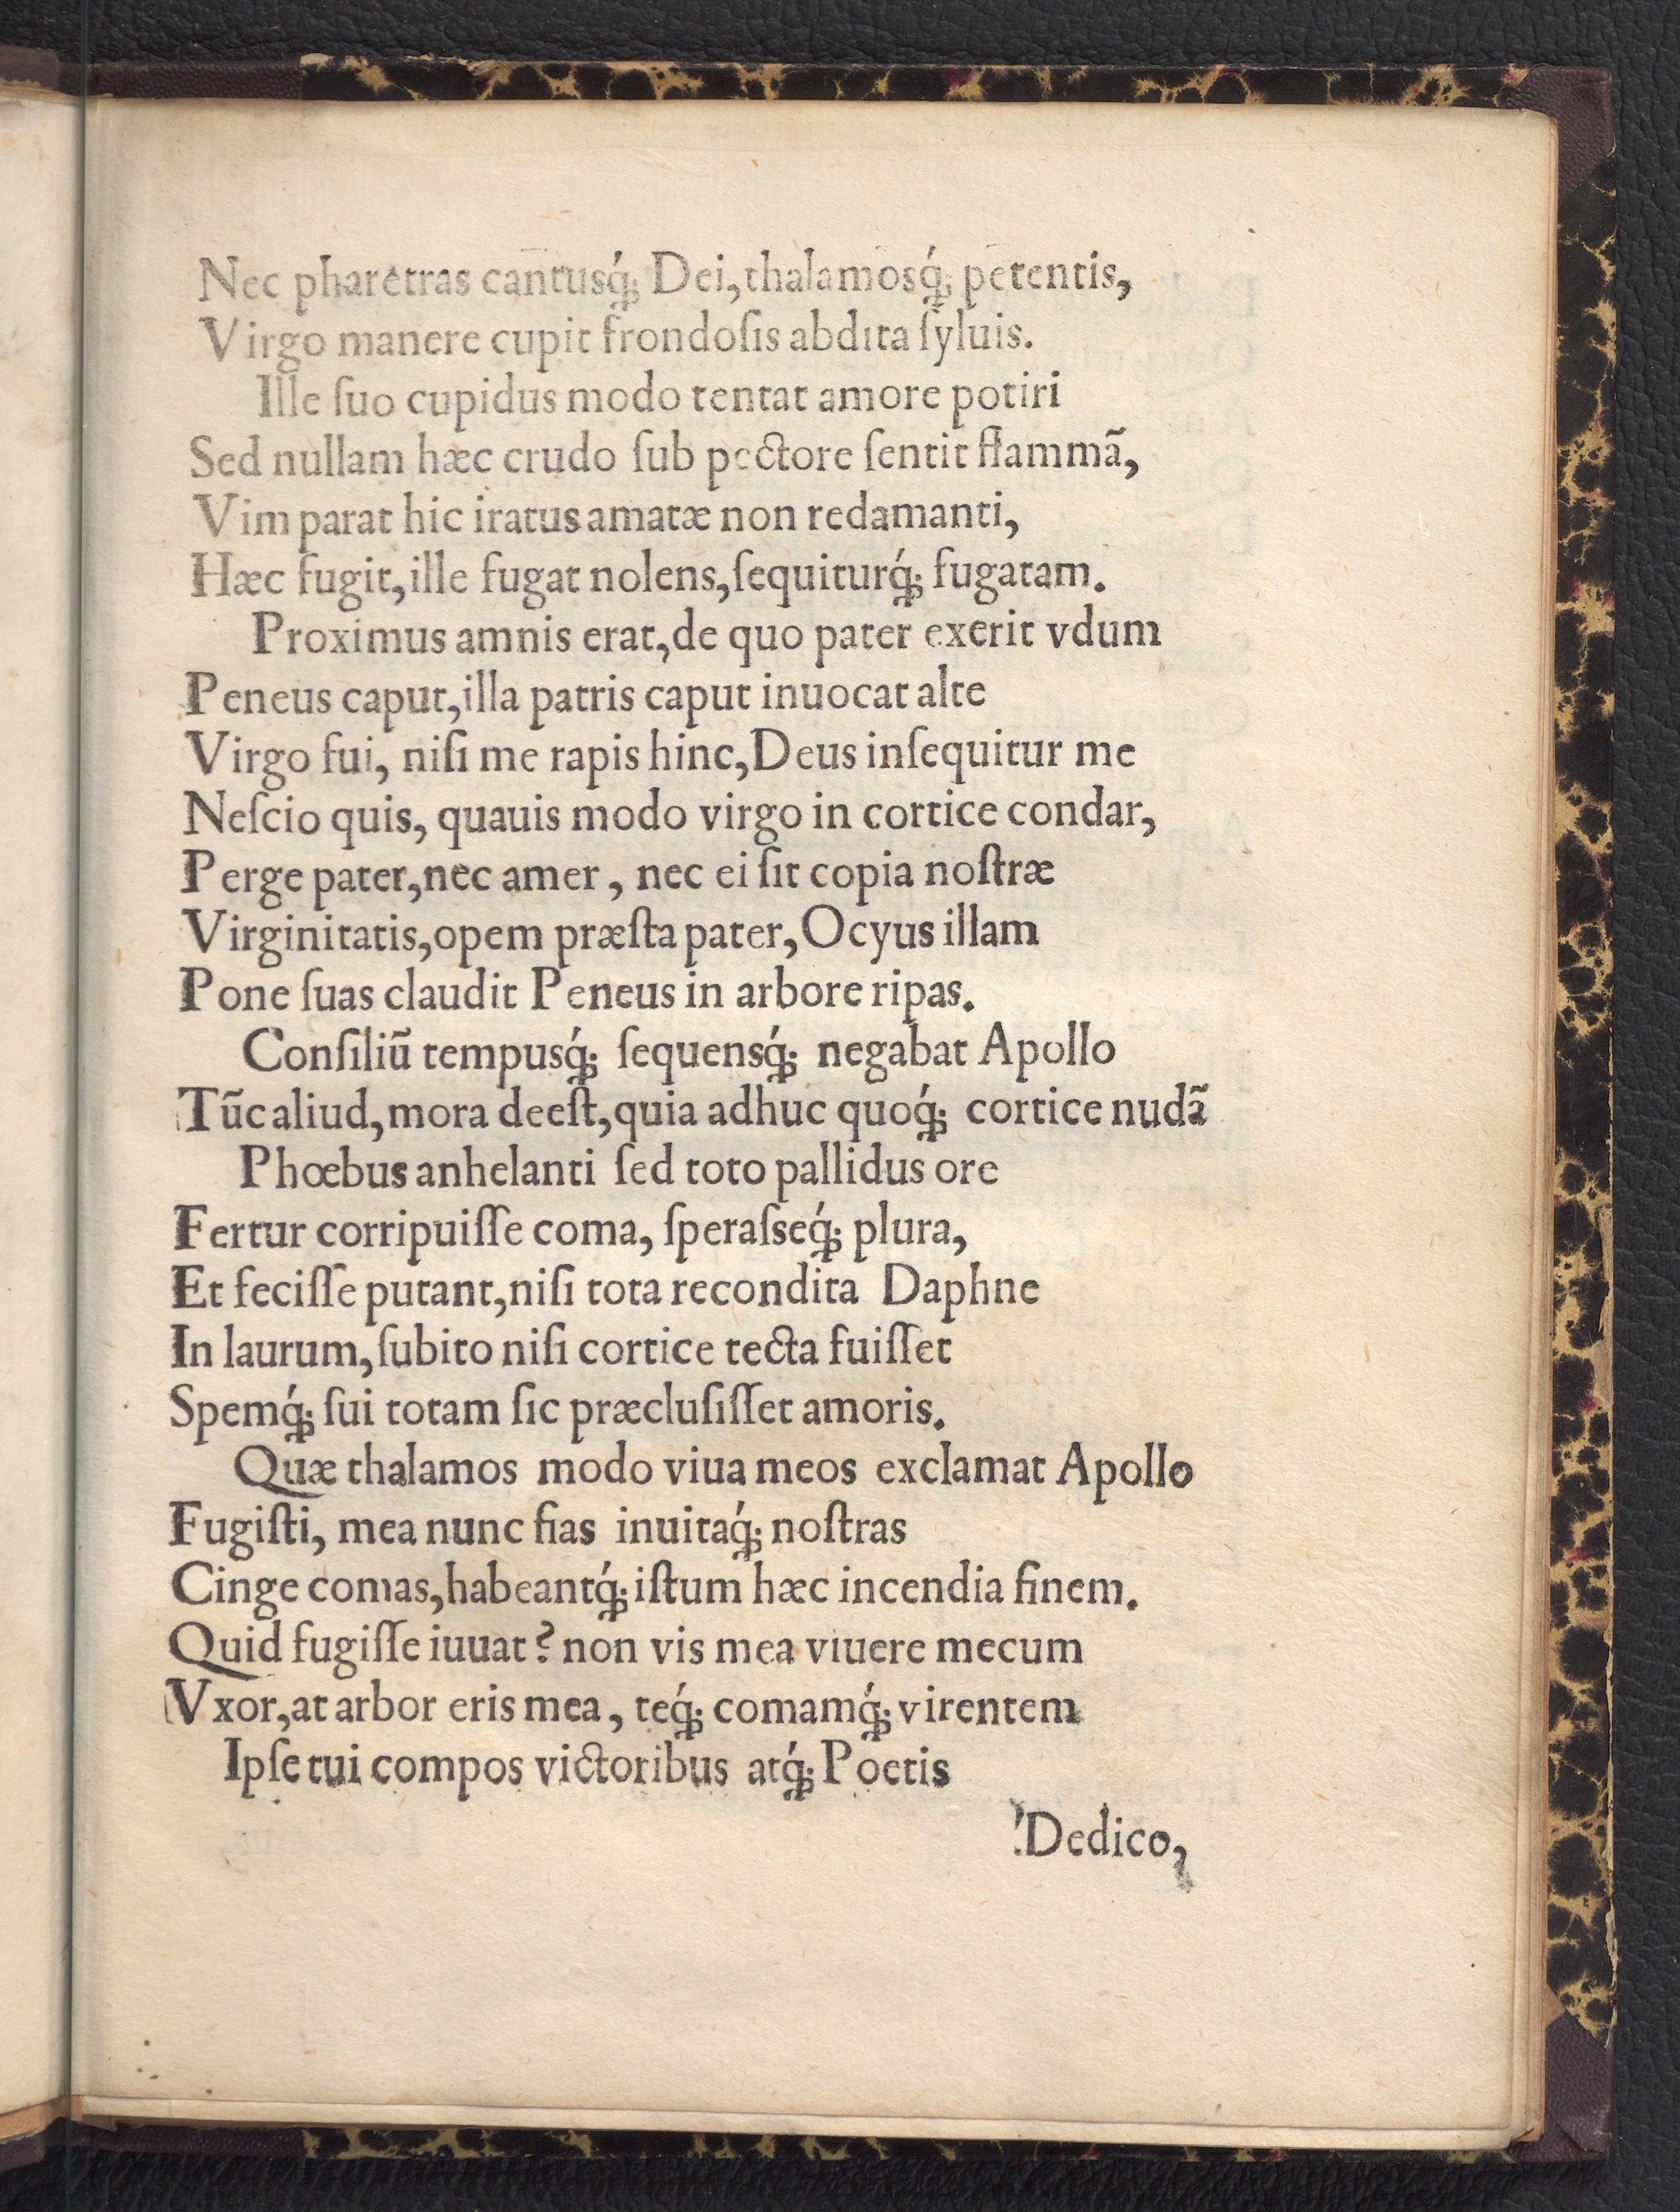 Nec pharetras cantusq́; Dei, thalamosq́; petentis,
Virgo manere cupit frondoſis abdita ſyluis.
Ille ſuo cupidus modo tentat amore potiri
Sed nullam hæc crudo ſub pectore ſentit flammã,
Vim parat hic iratus amatæ non redamanti,
Hæc fugit, ille fugat nolens, ſequiturq́; fugatam.
Proximus amnis erat, de quo pater exerit vdum
Peneus caput, illa patris caput inuocat alte
Virgo fui, niſi me rapis hinc, Deus inſequitur me
Neſcio quis, quauis modo virgo in cortice condar,
Perge pater, nec amer, nec ei ſit copia noſtræ
Virginitatis, opem præſta pater, Ocyus illam
Pone ſuas claudit Peneus in arbore ripas.
Conſiliũ tempusq́; ſequensq́; negabat Apollo
Tũc aliud, mora deeſt, quia adhuc quoq́; cortice nudã
Phœbus anhelanti ſed toto pallidus ore
Fertur corripuiſſe coma, ſperaſseq́; plura,
Et feciſſe putant, niſi tota recondita Daphne
In laurum, ſubito niſi cortice tecta fuiſſet
Spemq́; ſui totam ſic præcluſiſſet amoris.
Quæ thalamos modo viua meos exclamat Apollo
Fugiſti, mea nunc fias inuitaq́; noſtras
Cinge comas, habeantq́; iſtum hæc incendia finem.
Quid fugiſſe iuuat? non vis mea viuere mecum
Vxor, at arbor eris mea, teq́; comamq́; virentem
Ipſe tui compos victoribus atq́; Poetis
Dedico,